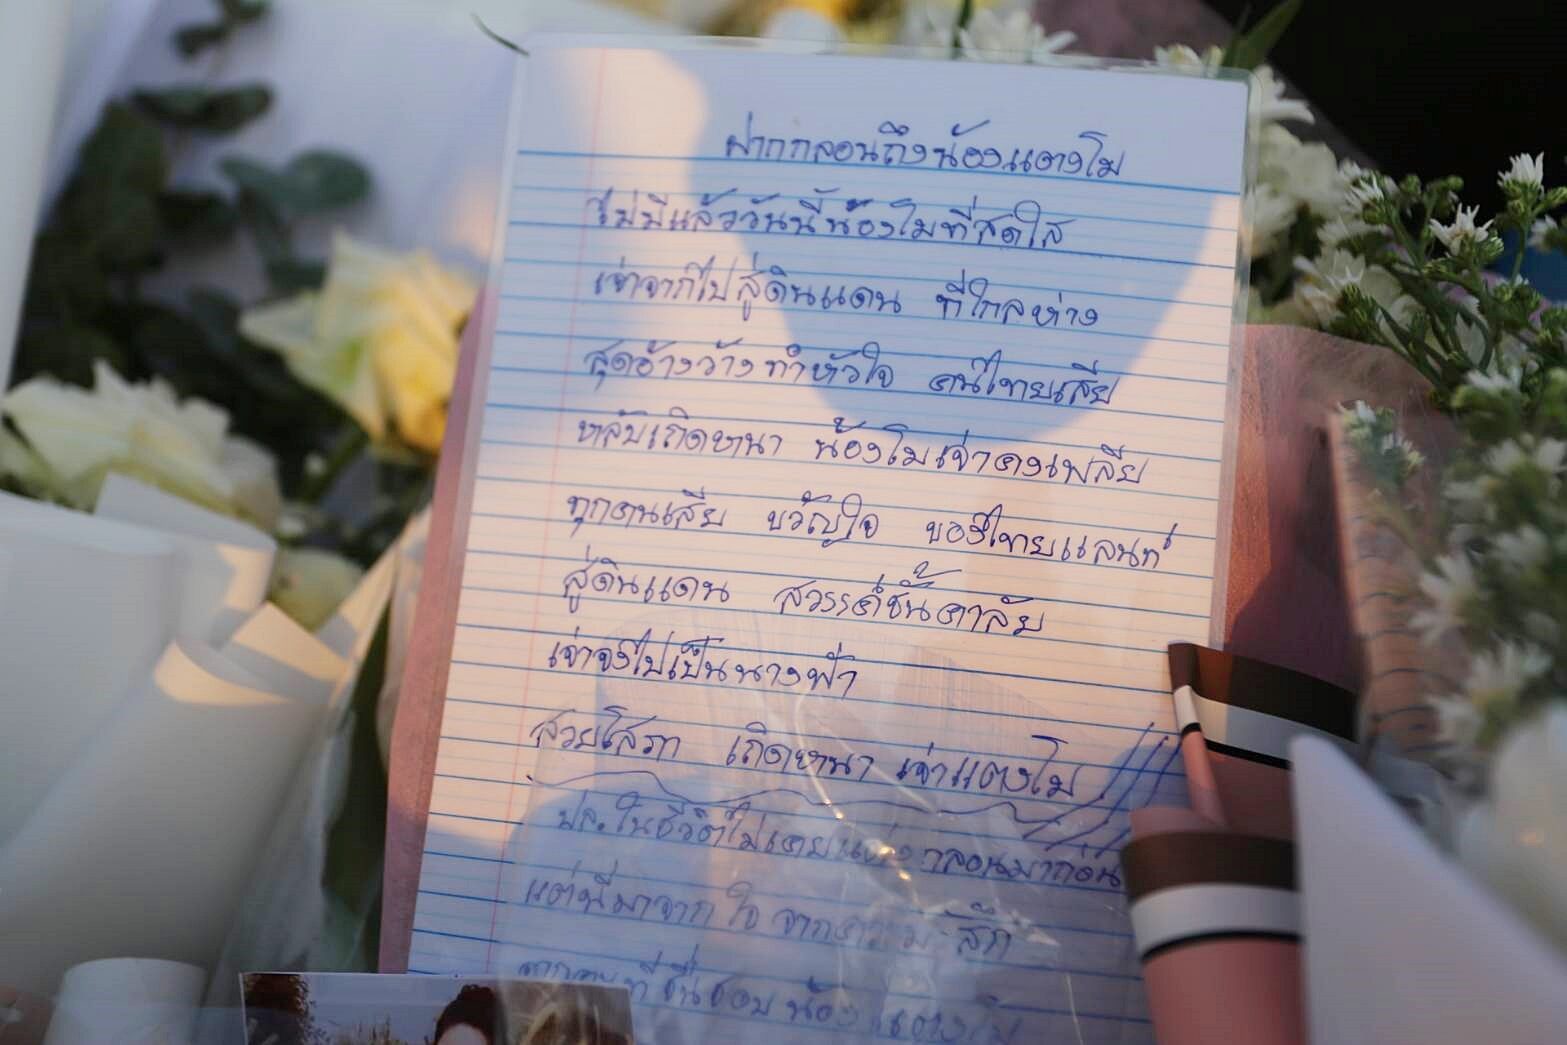 ฝากกลอนถึงน้องแตงโม
ไม่มีแล้ววันนี้น้องโมที่สดใส
เจ้าจากไปสู่ดินแดน ที่ไกลห่าง
สุดอ้างว้างทำหัวใจ คนไทยเสีย
หลับเถิดหนา น้องโมเจ้าคงเพลีย
ทุกคนเสีย ขวัญใจ ของไทยแลนท์
สู่ดินแดน สวรรค์ชั้นตาลัย
เจ้าจงไปเป็นนางฟ้า
สวยโสภา เถิดหนา เจ้าแตงโม
ปล. ในชีวิตไม่เคยแต่งกลอนมาก่อน
แต่นี่มาจาก ใจ จากความรู้สึก
ที่ชื่นชอบ น้องแตงโม